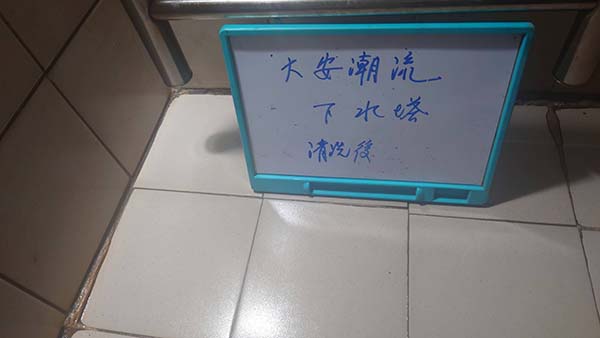 大安潮流
下水塔
清洗後